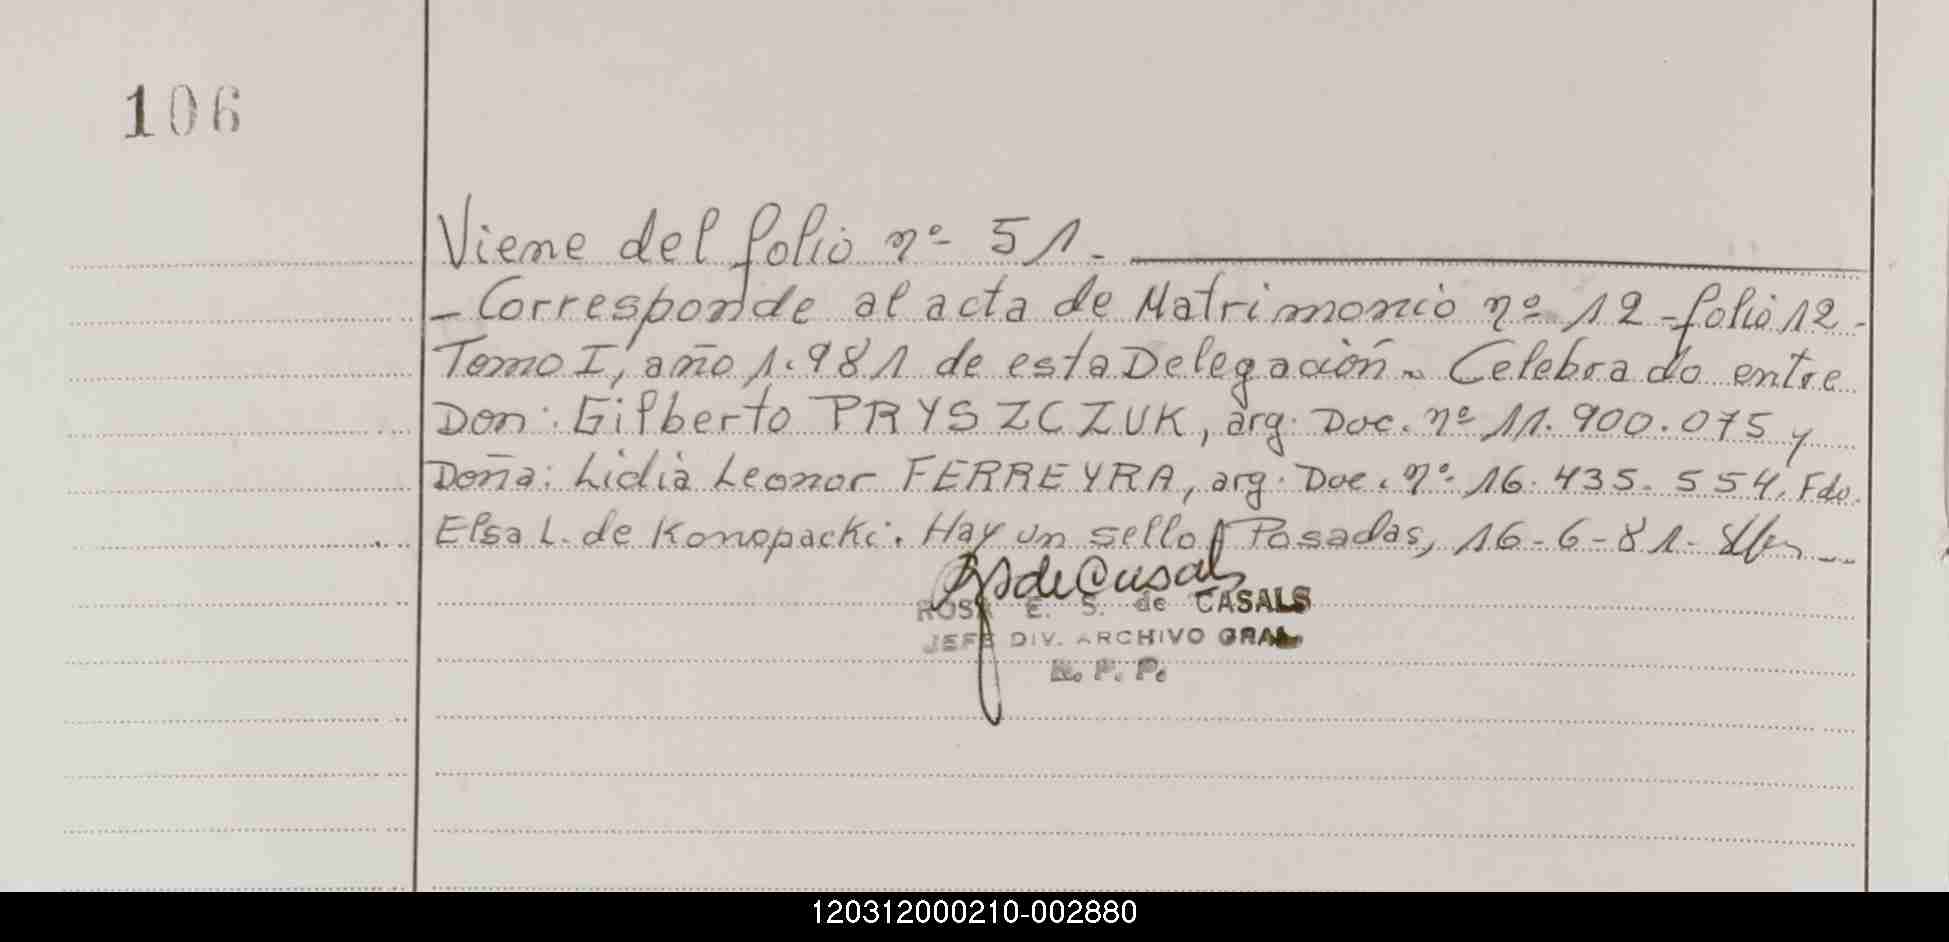 106
Viene del folio nº 51.-
- Corresponde al acta de Matrimonio nº 12 - folio 12 -
Tomo I, año 1.981 de esta Delegación - Celebrado entre
Don: Gilberto PRYSZCZUK, arg. Doc. nº 11.900.075 y
Doña: Lidia Leonor FERREYRA, arg. Doc. nº 16.435.554. Fdo.
Elsa L. de Konopacki. Hay un sello. Posadas, 16-6-81-
ROSA E. S. de CASALS
JEFE DIV. ARCHIVO GRAL.
R. P. P.
120312000210-002880